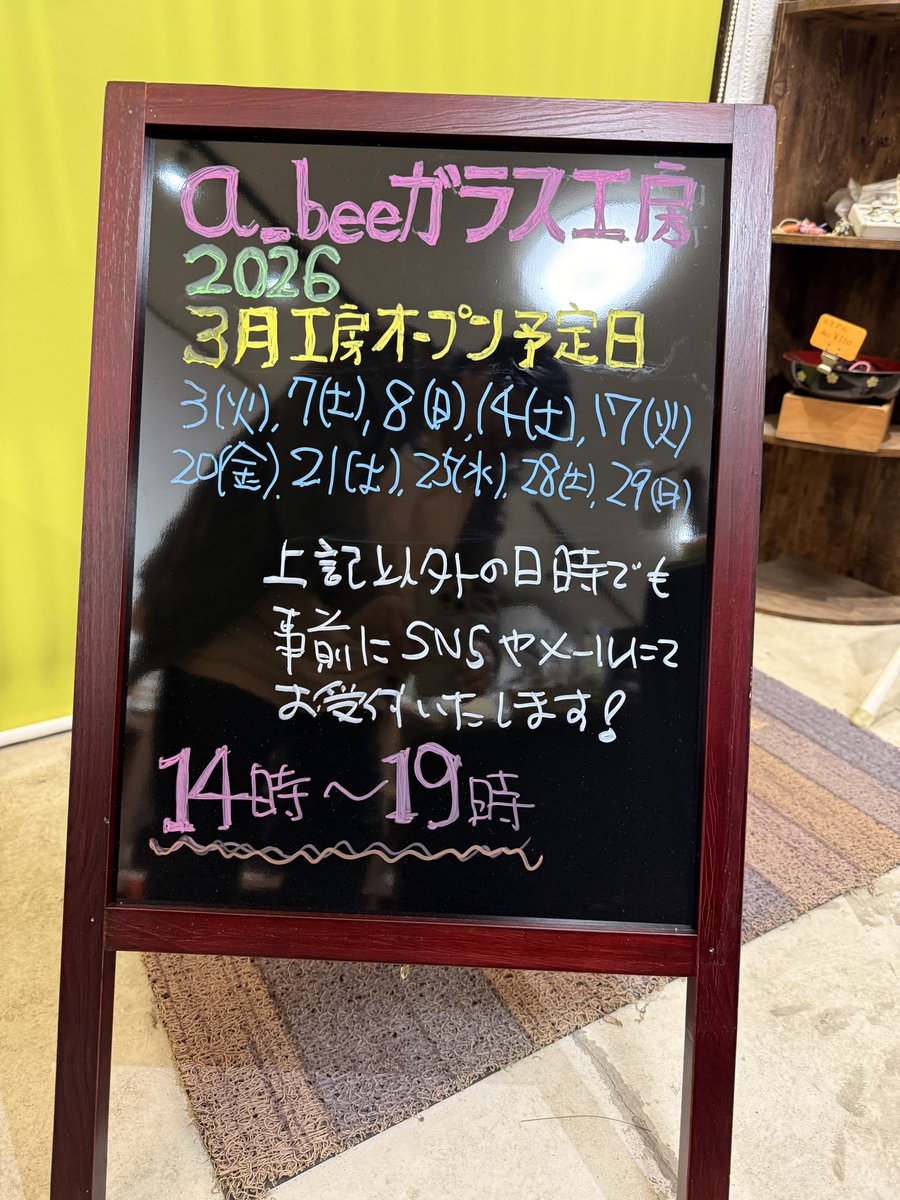 a_beeガラス工房
2026
3月工房オープン予定日
3(火), 7(土), 8(日), 14(土), 17(火)
20(金), 21(土), 25(水), 28(土), 29(日)
上記以外の日時でも
事前にSNSやメールにて
お受付いたします!
14時〜19時